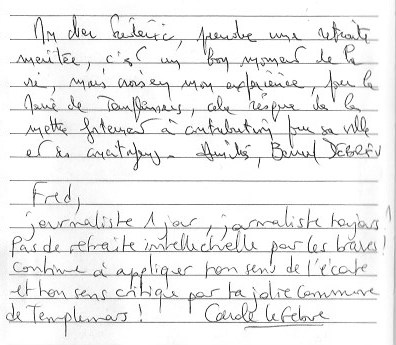 My cher Frédéric, prendre une retraite
méritée, c'est un bon moment de la
vie, mais croisez mon expérience, pour le
de Templemars, cela risque de le
mettre fortement à contribution pour sa ville
et ses concitoyens. Amitié, Bernard DEBREU
Fred,
journaliste 1 jour, journaliste toujours !
Pas de retraite intellectuelle pour les braves !
Continue à appliquer ton sens de l'écoute
et ton sens critique par ta jolie commune
de Templemars ! Carole Lefebvre